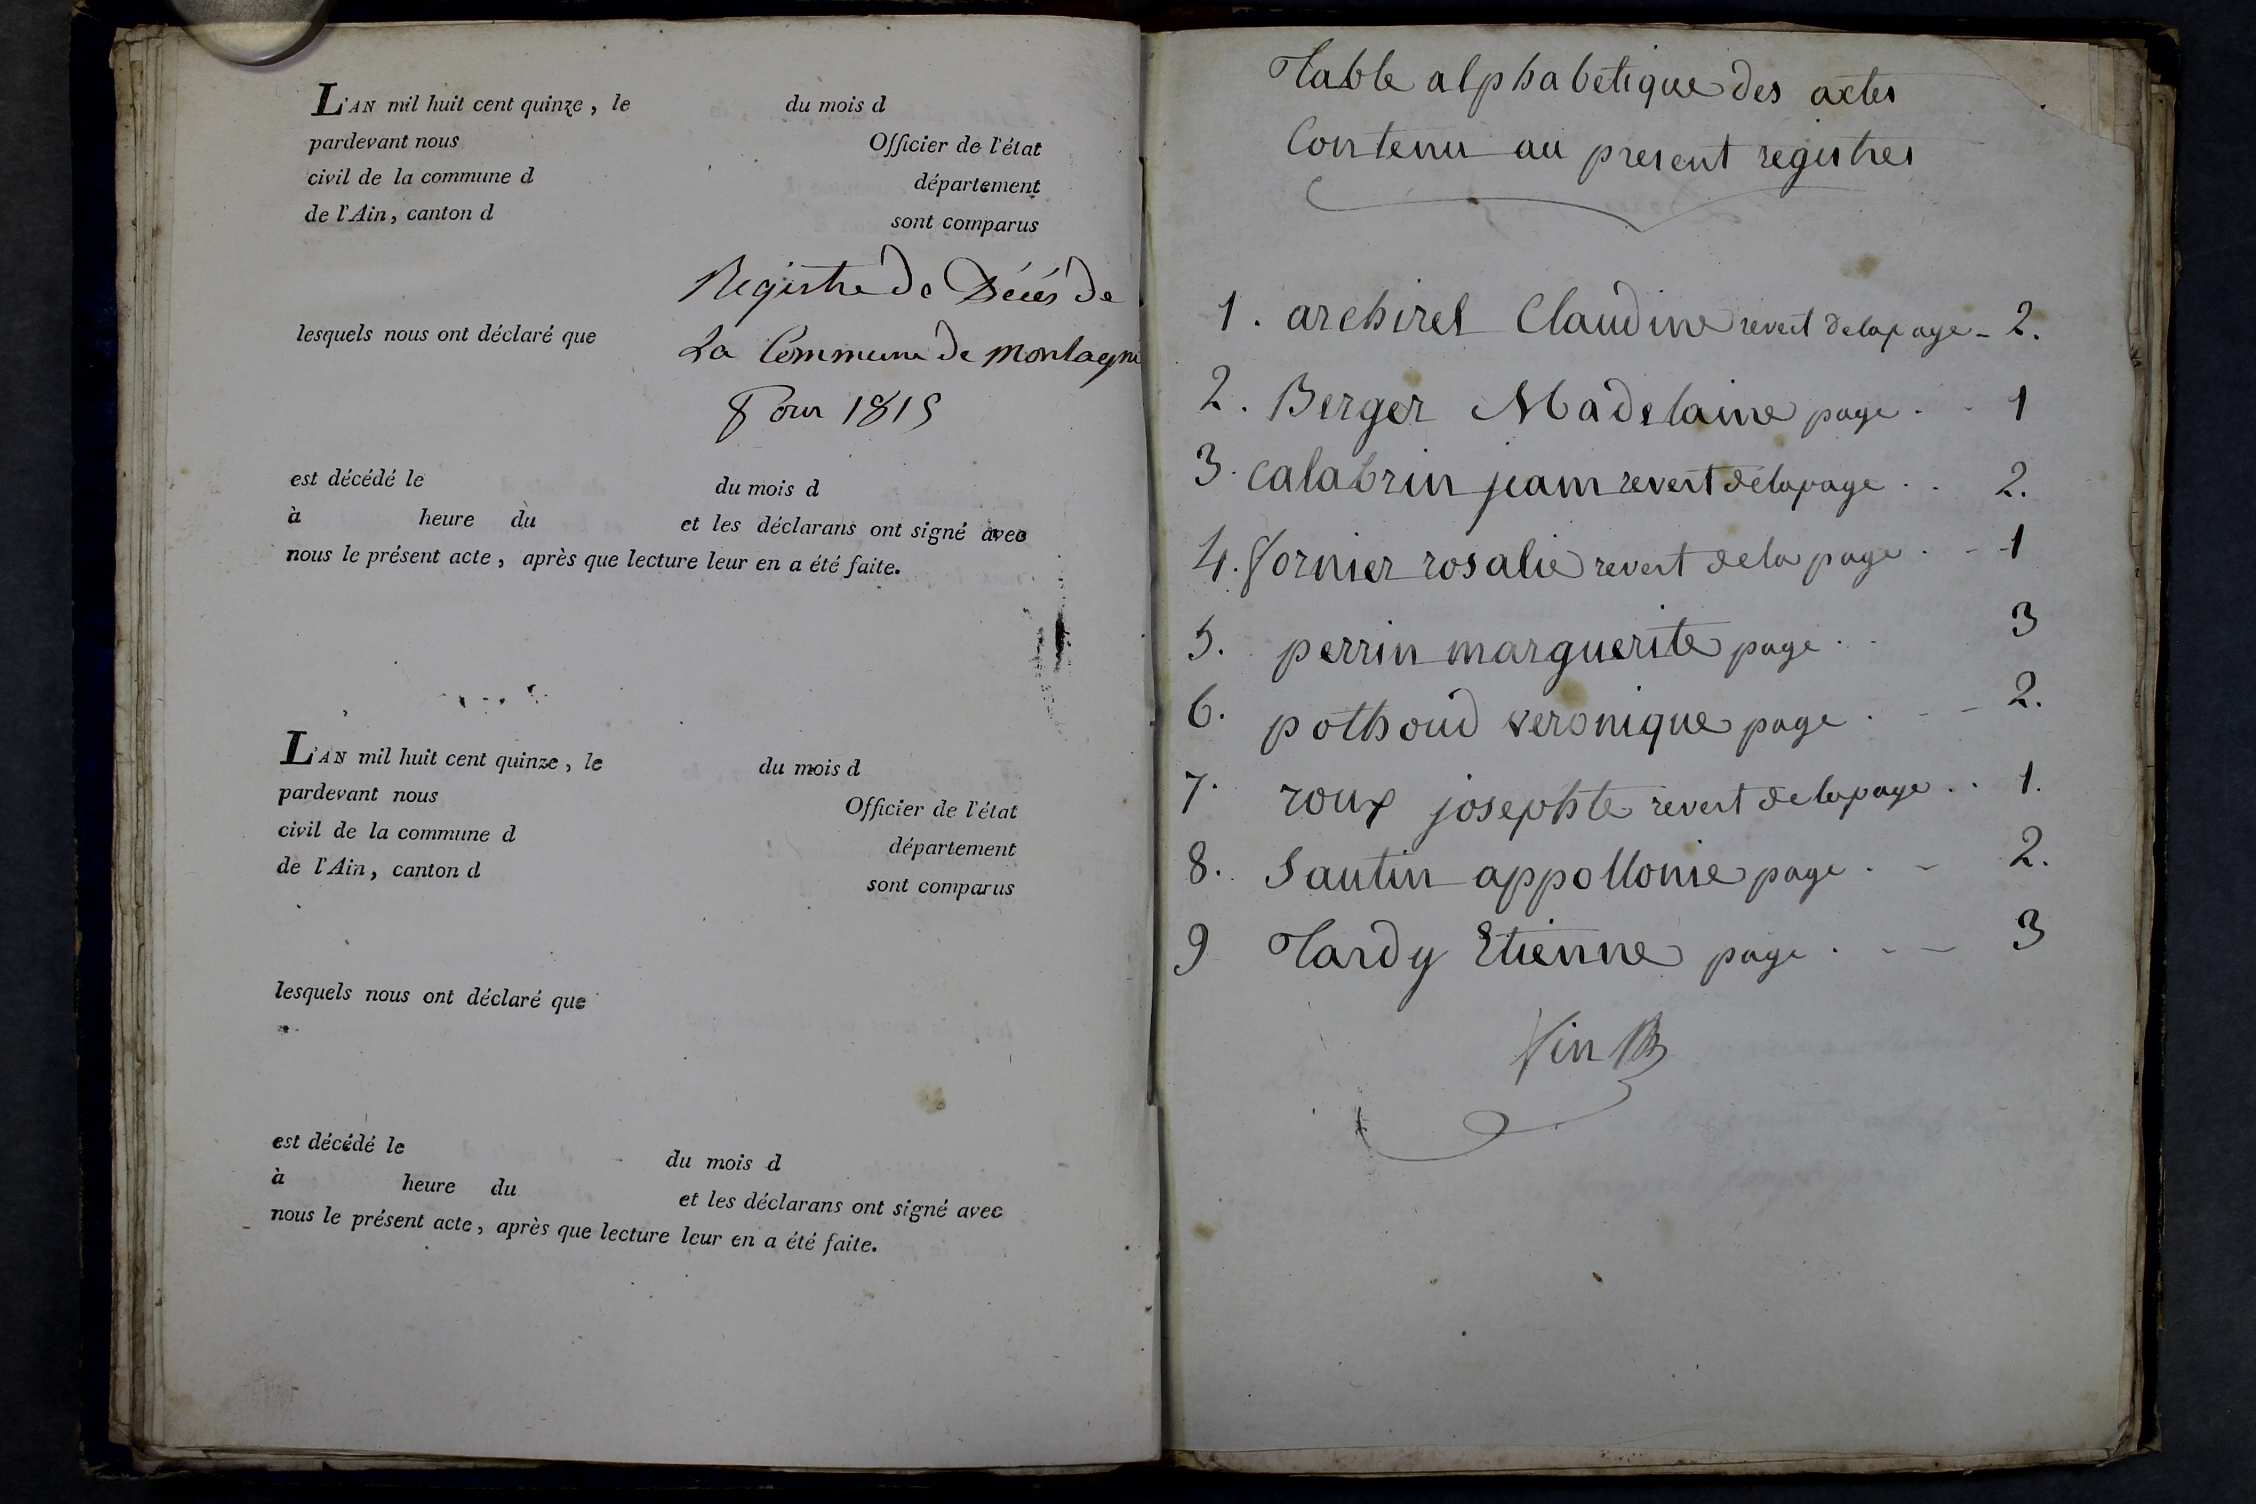 L'AN mil huit cent quinze, le du mois d
pardevant nous Officier de l'état
civil de la commune d département
de l'Ain, canton d sont comparus
Registre de Décés de
lesquels nous ont déclaré que La Commune de montagni
Pour 1815
est décédé le du mois d
à heure du et les déclarans ont signé avec
nous le présent acte, après que lecture leur en a été faite.
L'AN mil huit cent quinze, le du mois d
pardevant nous Officier de l'état
civil de la commune d département
de l'Ain, canton d sont comparus
lesquels nous ont déclaré que
est décédé le du mois d
à heure du et les déclarans ont signé avec
nous le présent acte, après que lecture leur en a été faite.
Table alphabetique des actes
Contenu au present registres
1. archirel Claudine revert de la page - 2.
2. Berger Madelaine page . . 1
3. calabrin jean revert de la page . . 2.
4. fornier rosalie revert de la page . - 1
5. perrin marguerite page . . 3
6. pothoud veronique page . - - 2.
7. roux josephte revert de la page . . 1.
8. Sautin appollonie page . - 2.
9 Tardy Etienne page . - - 3